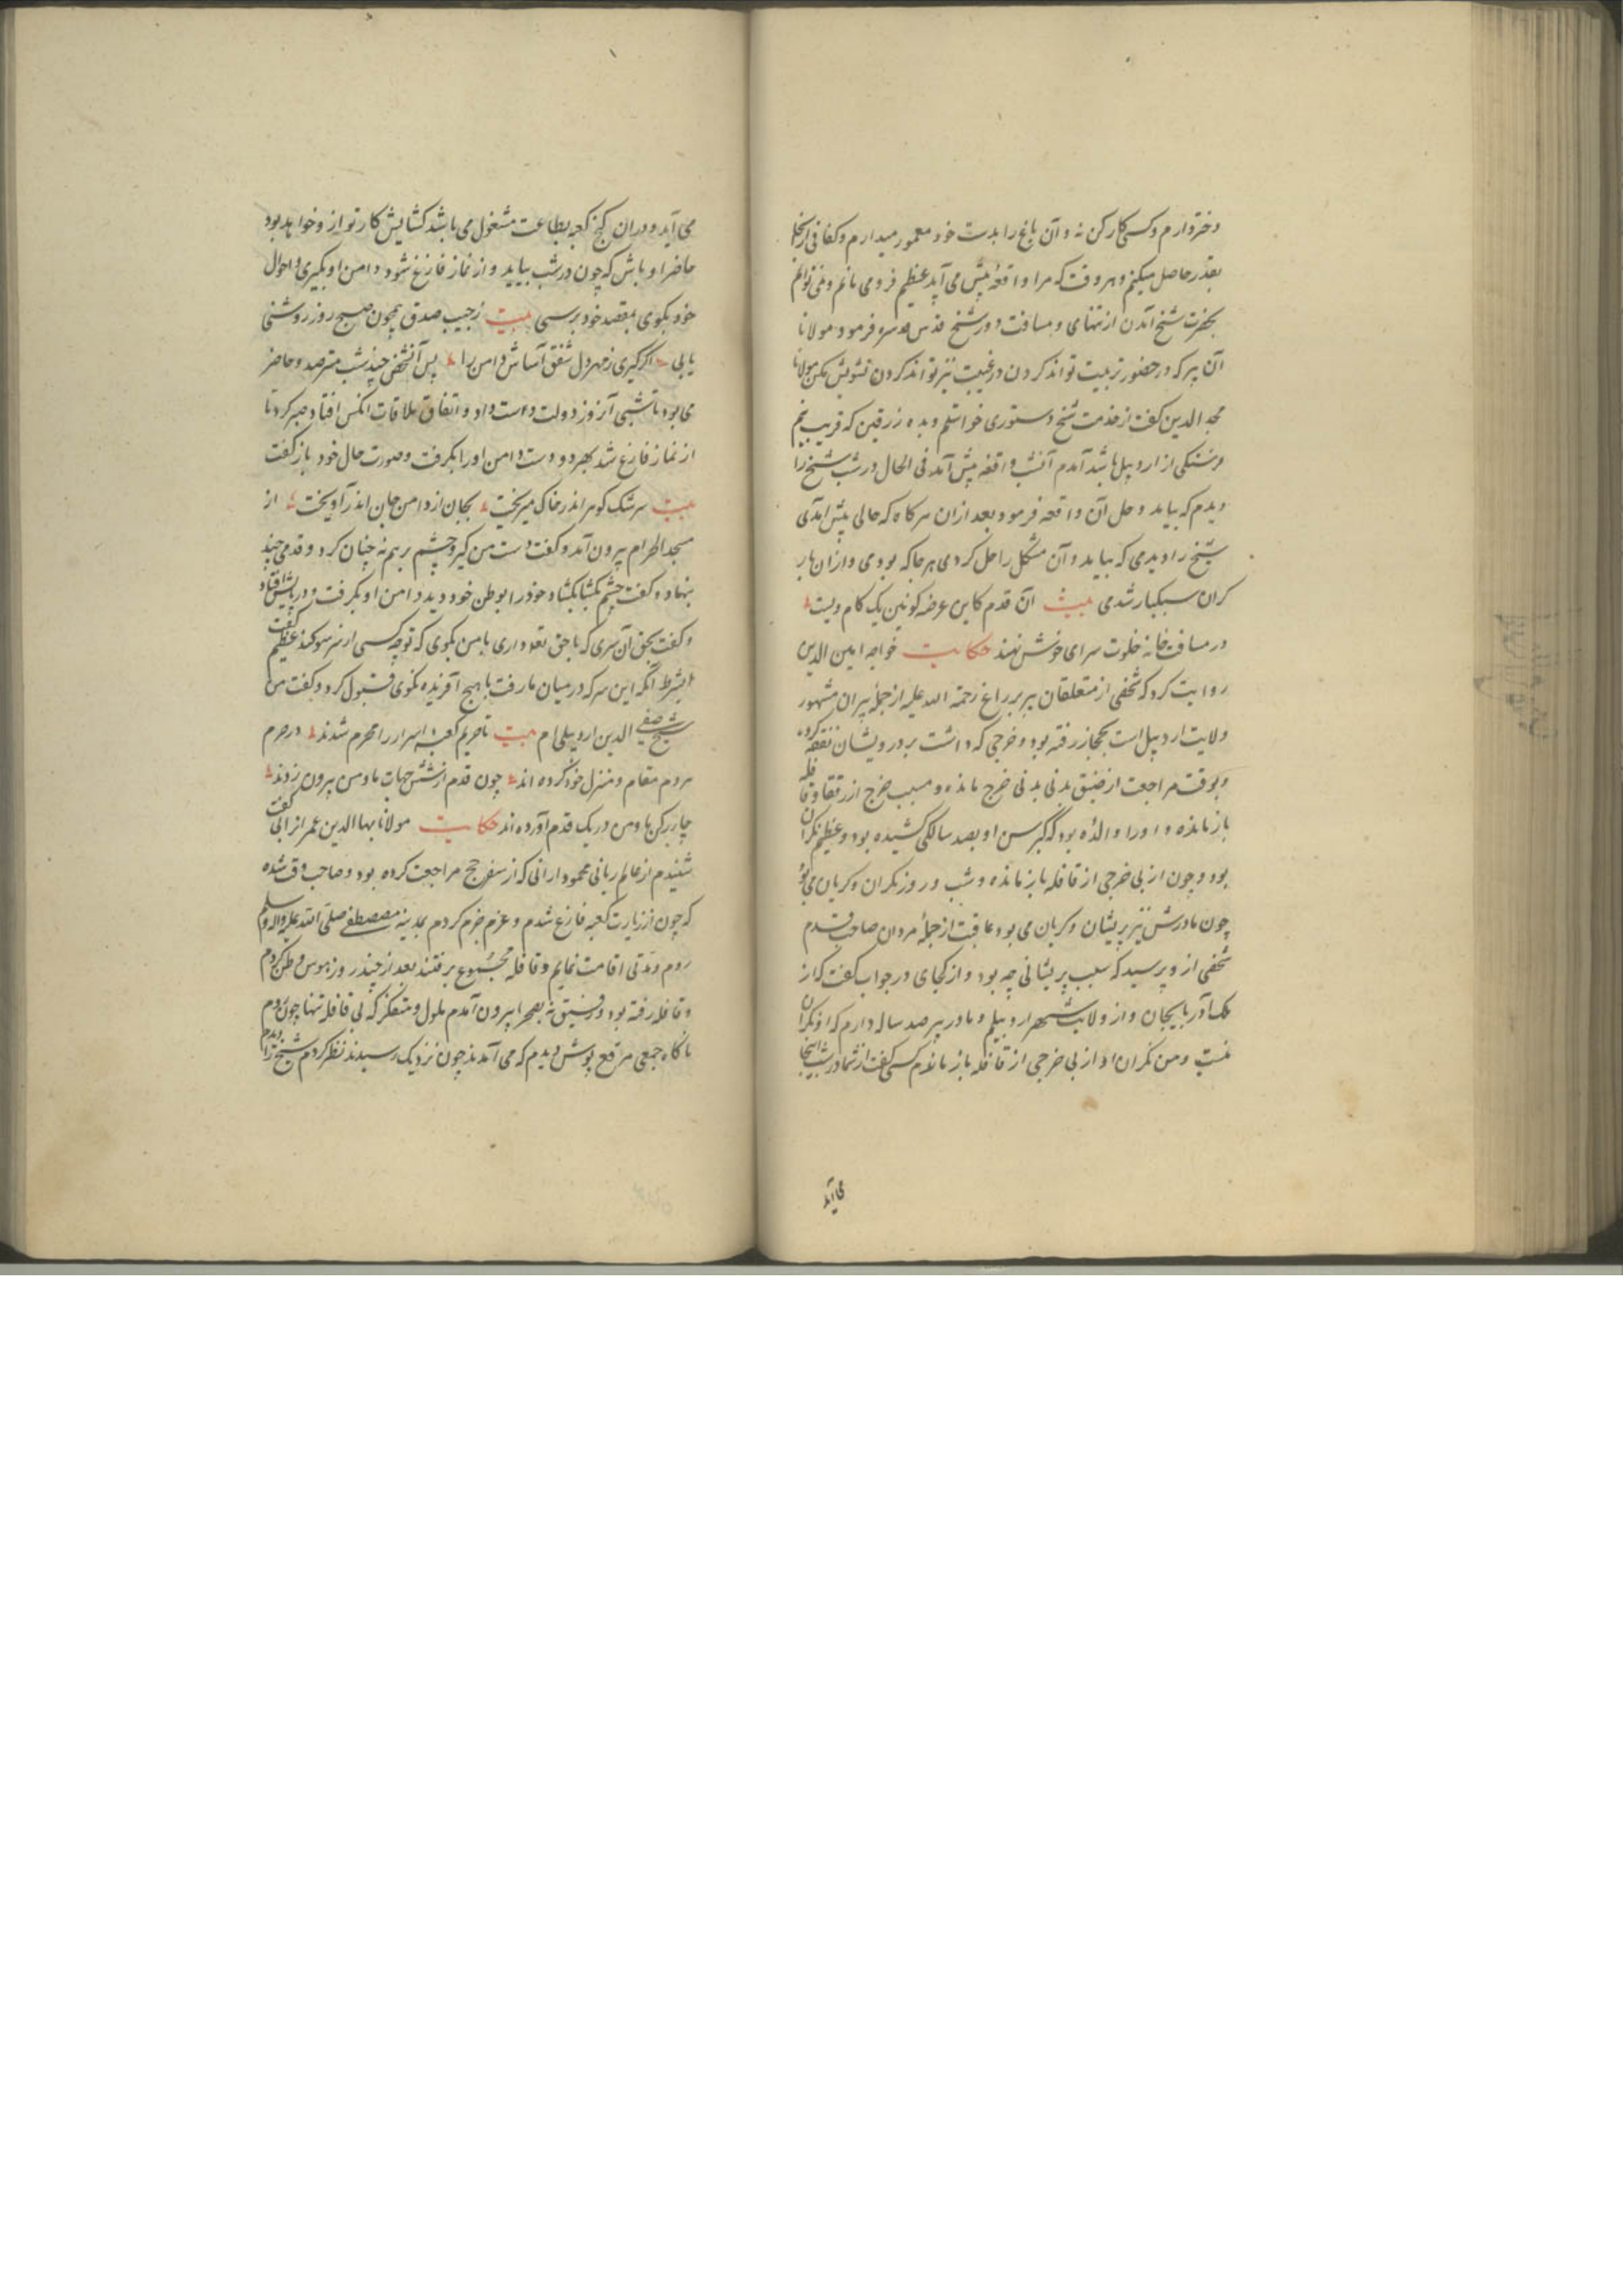 دختر دارم و کسی کارکن نه و آن باغ را بدست خود معمور میدارم و کفافی از آنجا
بقدر حاصل میکنم و هر وقت که مرا واقعهٔ پیش می آید عظیم فرو می مانم و نمی توانم
بحضرت شیخ آمدن از تنهای و مسافت دور شیخ قدس سره فرمود مولانا
آن پیر که در حضور تربیت تواند کردن در غیبت نیز تواند کردن تشویش مکن مولانا
مجد الدین گفت از خدمت شیخ دستوری خواستم و بده زرقین که قریب نیم
فرسنگی از اردبیل باشد آمدم آن شب واقعه پیش آمد فی الحال در شب شیخ را
دیدم که بیامد و حل آن واقعه فرمود بعد ازان هر گاه که حالی پیش آمدی
شیخ را دیدمی که بیامد و آن مشکل را حل کردی هر جا که بودمی و ازان بار
گران سبکبار شدمی بیت آن قدم کاین عرصه کونین یک گام ویست
در مسافت خانه خلوت سرای خوش نهند حکایت خواجه امین الدین
روایت کرد که شخصی از متعلقان پیر براغ رحمة الله علیه از جملهٔ پیران مشهور
ولایت اردبیل است بحجاز رفته بود و خرجی که داشت بر درویشان نفقه کرده
و بوقت مراجعت از ضیق بدنی بدنی خرج مانده و بسبب خرج از رفقا و قافله
باز مانده و او را والدهٔ بود که کبر سن او بصد سالگی کشیده بود و عظیم نگران
بود و چون از بی خرجی از قافله باز مانده و شب و روز نگران و گریان می بود
چون مادرش نیز پریشان و گریان می بود عاقبت از جملهٔ مردان صاحب قدم
شخصی از و پرسید که سبب پریشانی چه بود و از کجای در جواب گفت که از
ملک آذربایجان و از ولایت شهر اردبیلم و مادر پیر صد ساله دارم که او نگران
منست و من نگران او از بی خرجی از قافله باز ماندم کسی گفت از شما در شب اینجا
می آید
می آید و دران کنج کعبه بطاعت مشغول می باشد گشایش کار تو از و خواهد بود
حاضر او باش که چون در شب بیاید و از نماز فارغ شود دامن او بگیری و احوال
خود بگوی بمقصد خود برسی بیت ز جیب صدق همچون صبح روز روشنی
یابی اگر گیری ز مهر دل شفق آساش دامن را پس آن شخص چند شب مترصد و حاضر
می بود تا شبی آن روز دولت دست داد و اتفاق ملاقات آنکس افتاد صبر کرد تا
از نماز فارغ شد بهر دو دست دامن او را بگرفت و صورت حال خود باز گفت
بیت سرشک گوهر اندر خاک میریخت بجان از دامن جان اندر آویخت از
مسجد الحرام بیرون آمد و گفت دست من گیر و چشم بر هم نه چنان کرد و قدمی چند
بنهاد و گفت چشم بگشا بگشاد خود را بوطن خود دید دامن او بگرفت و در پایش افتاد
و گفت بحق آن سری که با حق تعد داری با من بگوی که تو چه کسی از سر سوگند عظیم گفت
بشرط آنکه این سر که در میان ما رفت با هیچ آفریده نگوی قبول کرد و گفت من
شیخ صفی الدین اردبیلی ام بیت تا حریم کعبه اسرار را محرم شدند در حرم
مردم مقام و منزل خود کرده اند چون قدم از شش جهات ما و من بیرون زدند
چار رکن ما و من در یک قدم آورده اند حکایت مولانا بهاالدین عمر انرابی گفت
شنیدم از عالم ربانی محمود ارانی که از سفر حج مراجعت کرده بود و صاحب وقت شده
که چون از زیارت کعبه فارغ شدم و عزم جزم کردم بمدینه مصطفی صلی الله علیه و اله و سلم
روم و مدتی اقامت نمایم و قافله مجموع برفتند بعد از چند روز هوس وطن کردم
و قافله رفته بود و رفیق نه بصحرا بیرون آمدم ملول و متفکر که بی قافله تنها چون روم
ناگاه جمعی مرقع پوش دیدم که می آمدند چون نزدیک رسیدند نظر کردم شیخ را دیدم